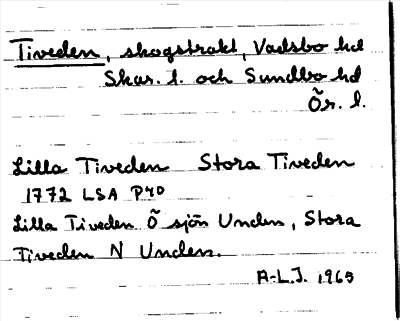 Tiveden, skogstrakt, Vadsbo hd
Skar. l. och Sundbo hd
Ör. l.
Lilla Tiveden Stora Tiveden
1772 LSA P40
Lilla Tiveden Ö sjön Unden, Stora
Tiveden N Unden.
A-L.J. 1965